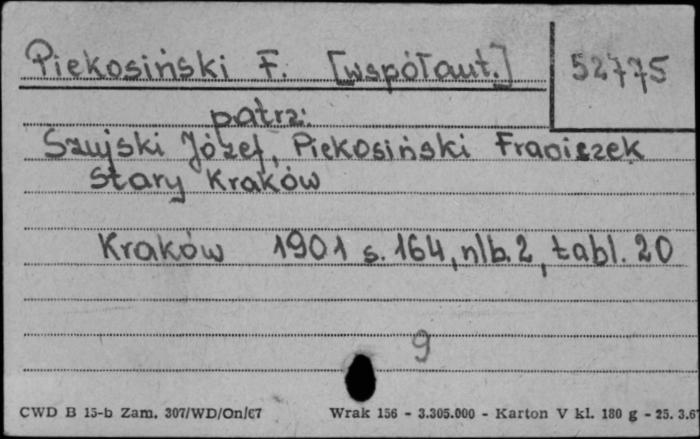 Piekosiński F. [współaut.] 52775
patrz:
Szujski Józef, Piekosiński Fraciszek
Stary Kraków
Kraków 1901 s. 164, nlb. 2, tabl. 20
9
CWD B 15-b Zam. 307/WD/On/67 Wrak 156 - 3.305.000 - Karton V kl. 180 g - 25. 3.67